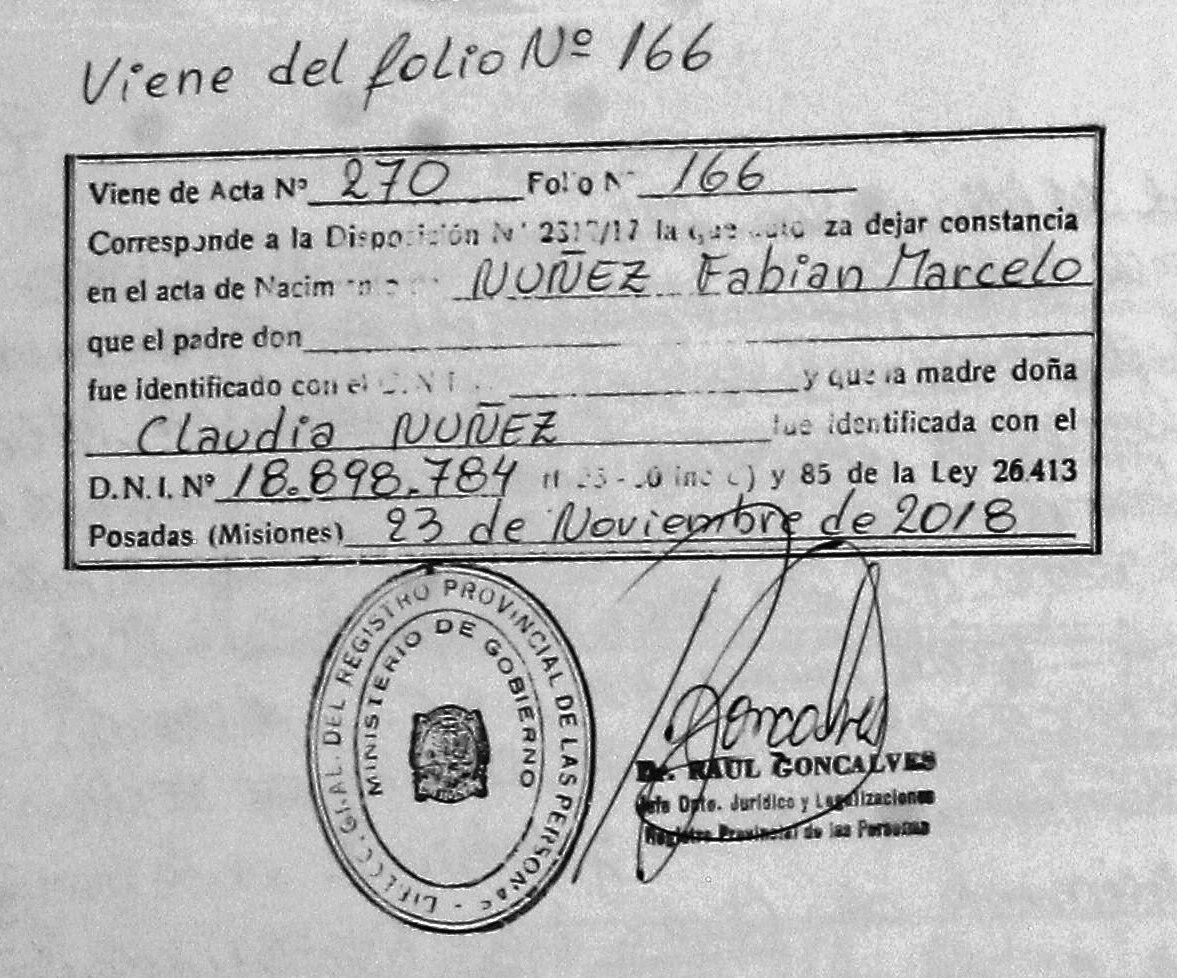 Viene del folio Nº 166
Viene de Acta Nº 270 Folio Nº 166
Corresponde a la Disposición Nº la que autoriza dejar constancia
en el acta de Nacimiento NUÑEZ Fabian Marcelo
que el padre don
fue identificado con el y que la madre doña
Claudia NUÑEZ fue identificada con el
D.N.I. Nº 18.898.784 y 85 de la Ley 26.413
Posadas (Misiones) 23 de Noviembre de 2018
GRAL. DEL REGISTRO PROVINCIAL DE LAS PERSONAS
MINISTERIO DE GOBIERNO
Goncalves
Dr. RAUL GONCALVES
Jefe Dpto. Jurídico y Legalizaciones
Registro Provincial de las Personas